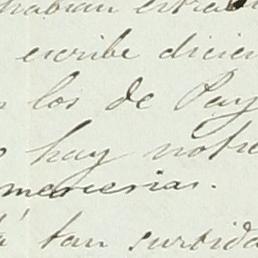 habian estra
escribe dicien
los de Pay
hay notre
mercerias.
tan surtida